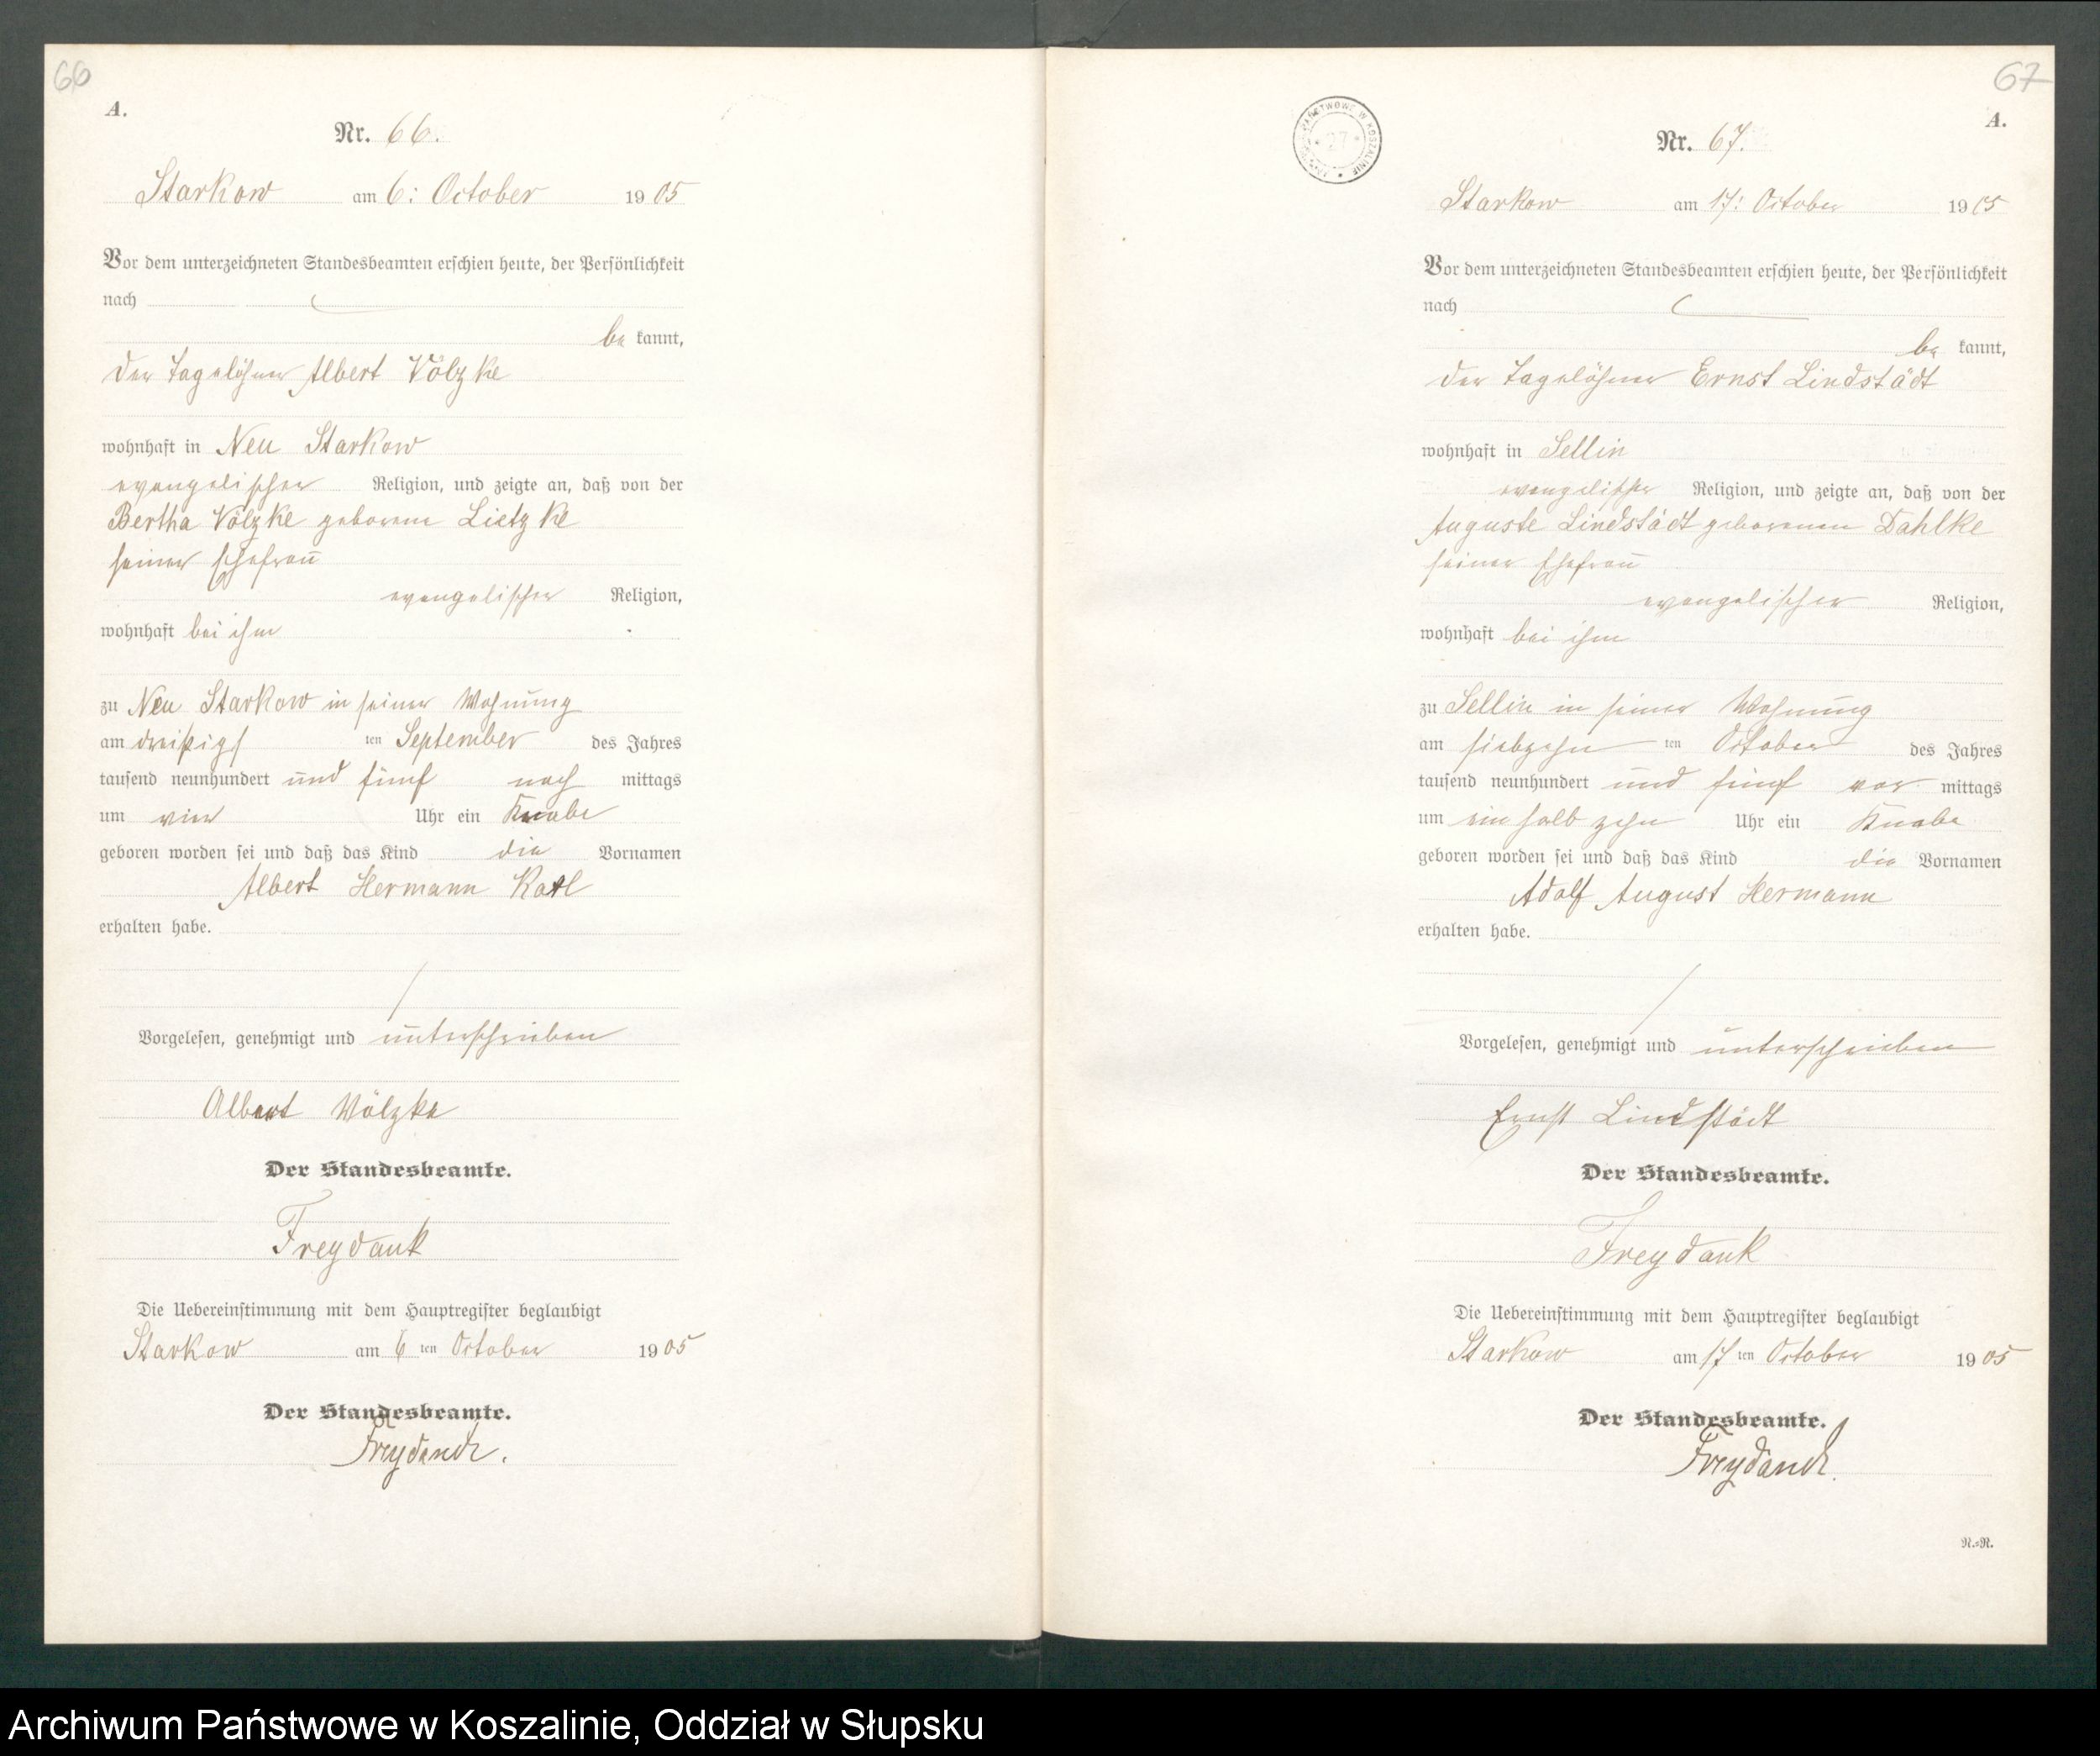 66
A.
Nr. 66.
Starkow am 6: October 1905
Vor dem unterzeichneten Standesbeamten erschien heute, der Persönlichkeit
nach
be kannt,
der Tagelöhner Albert Völzke
wohnhaft in Neu Starkow
evangelischer Religion, und zeigte an, daß von der
Bertha Völzke geborene Lietzke
seiner Ehefrau
evangelischer Religion,
wohnhaft bei ihm
zu Neu Starkow in seiner Wohnung
am dreißigs ten September des Jahres
tausend neunhundert und fünf nach mittags
um vier Uhr ein Knabe
geboren worden sei und daß das Kind die Vornamen
Albert Hermann Karl
erhalten habe.
Vorgelesen, genehmigt und unterschrieben
Albert Völzke
Der Standesbeamte.
Freydank
Die Uebereinstimmung mit dem Hauptregister beglaubigt
Starkow am 6 ten October 1905
Der Standesbeamte.
Freydank.
67
A.
PAŃSTWOWE W KOSZALINIE
27
Nr. 67.
Starkow am 17: October 1905
Vor dem unterzeichneten Standesbeamten erschien heute, der Persönlichkeit
nach
be kannt,
der Tagelöhner Ernst Lindstädt
wohnhaft in Sellin
evangelischer Religion, und zeigte an, daß von der
Auguste Lindstädt geborenen Dahlke
seiner Ehefrau
evangelischer Religion,
wohnhaft bei ihm
zu Sellin in seiner Wohnung
am siebzehn ten October des Jahres
tausend neunhundert und fünf vor mittags
um ein halb zehn Uhr ein Knabe
geboren worden sei und daß das Kind die Vornamen
Adolf August Hermann
erhalten habe.
Vorgelesen, genehmigt und unterschrieben
Ernst Lindstädt
Der Standesbeamte.
Freydank
Die Uebereinstimmung mit dem Hauptregister beglaubigt
Starkow am 17 ten October 1905
Der Standesbeamte.
Freydank.
R.=R.
Archiwum Państwowe w Koszalinie, Oddział w Słupsku